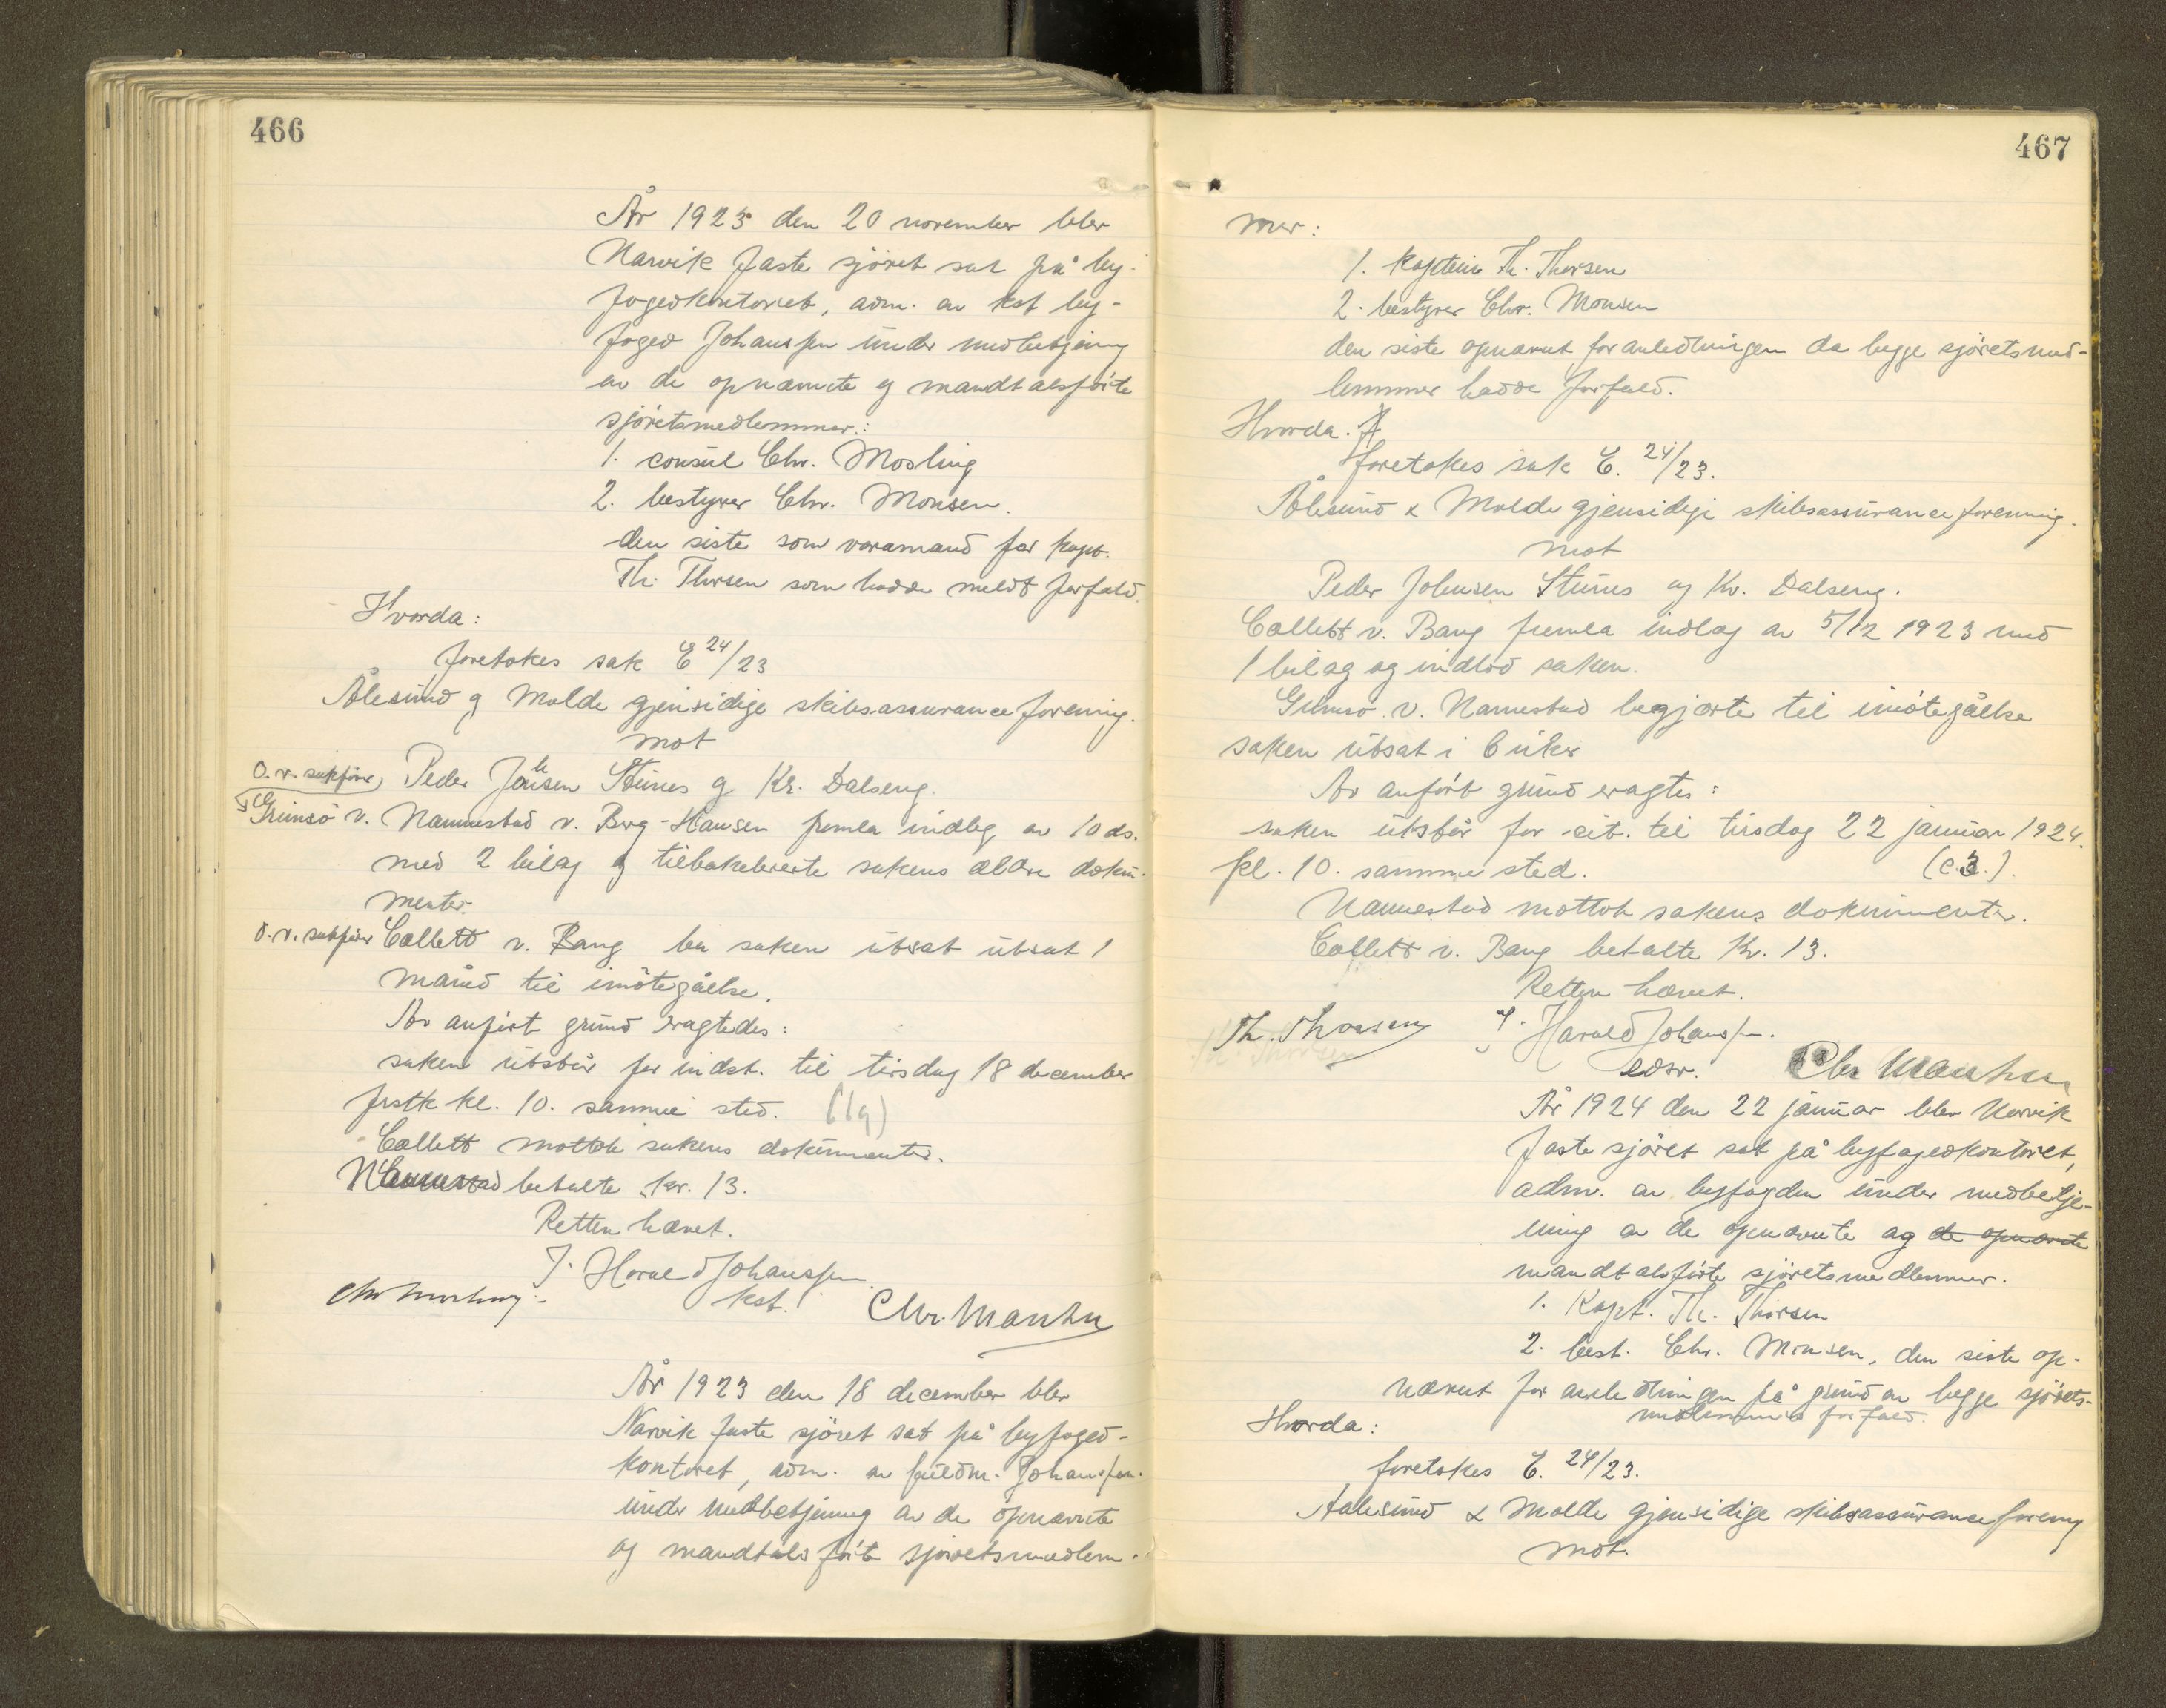 466
År 1923 den 20 november blev
Narvik faste sjöret sat på by-
fogedkontoret, adm. av kst by-
foged Johanssen under medbetjening
av de opnævnte og mandtalsförte
sjöretsmedlemmer:
1. consul Chr. Mosling
2. bestyrer Chr. Monsen.
den siste som varamand for kapt.
Th. Thorsen som hadde meldt forfald.
Hvorda:
foretokes sak E 24/23
Ålesund og Molde gjensidige skibsassuranceforening.
mot
Peder Johnsen Stünes og Kr. Dalseng.
o.r. sakförer
Grimsö v. Nannestad v. Berg-Hansen fremla indlæg av 10 ds.
med 2 bilag og tilbakeleverte sakens ældre doku-
menter.
o.r. sakförer Collett v. Bang ba saken utsat utsat 1
måned til imötegåelse.
Av anfört grund eragtedes:
saken utstår for indst. til tirsdag 18 december
förstk kl. 10. samme sted. (19)
Collett mottok sakens dokumenter.
Nannestad betalte kr. 13.
Retten hævet.
J. Harald Johanssen
kst.
Chr Mosling
Chr. Monsen
År 1923 den 18 december blev
Narvik faste sjöret sat på byfoged-
kontoret, adm. av fuldm. Johanssen.
under medbetjening av de opnævnte
og mandtalsförte sjöretsmedlem-
467
mer:
1. kaptein Th. Thorsen
2. bestyrer Chr. Monsen
den siste opnævnt for anledningen da begge sjöretsmed-
lemmer hadde forfald.
Hvorda.
foretokes sak E. 24/23.
Ålesund & Molde gjensidige skibsassuranceforening.
mot
Peder Johnsen Stünes og Kr. Dalseng.
Collett v. Bang fremla indlæg av 5/12 1923 med
1 bilag og indlod saken.
Grimsö v. Nannestad begjærte til imötegåelse
saken utsat i 6 uker
Av anfört grund eragtes:
saken utstår for cit. til tirsdag 22 januar 1924.
kl. 10. samme sted. (c.3.).
Nannestad mottok sakens dokumenter.
Collett v. Bang betalte Kr. 13.
Retten hævet.
Th. Thorsen
J. Harald Johanssen.
edsv.
Chr Monsen
År 1924 den 22 januar blev Narvik
faste sjöret sat på byfogedkontoret,
adm. av byfogden under medbetje-
ning av de opnævnte og de opnævnte
mandtalsförte sjöretsmedlemmer.
1. Kapt. Th. Thorsen
2. best. Chr. Monsen, den siste op-
nævnt for anledningen på grund av begge sjörets-
medlemmers forfald.
Hvorda:
foretokes E. 24/23.
Aalesund & Molde gjensidige skibsassuranceforening
mot.